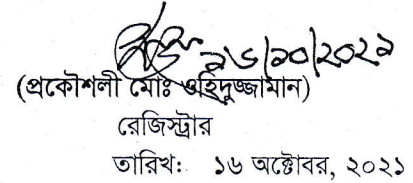 ১৬/১০/২০২১
(প্রকৌশলী মোঃ ওহিদুজ্জামান)
রেজিস্ট্রার
তারিখ: ১৬ অক্টোবর, ২০২১